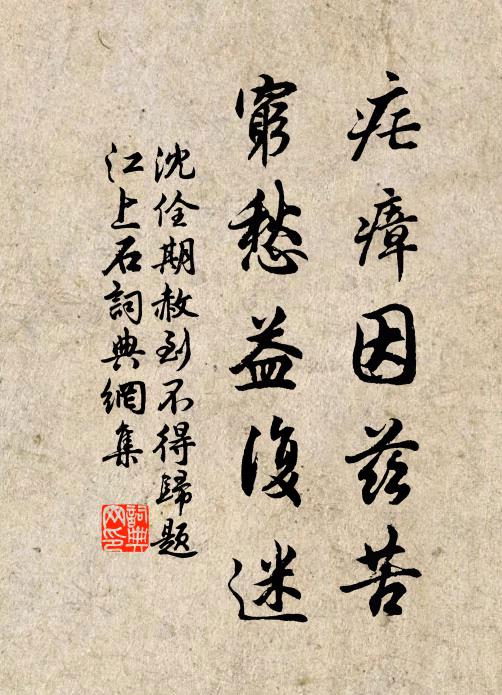 疟瘴因兹苦
窮愁益復迷
沈佺期赦到不得歸題
江上石詞典網集
詞典网印